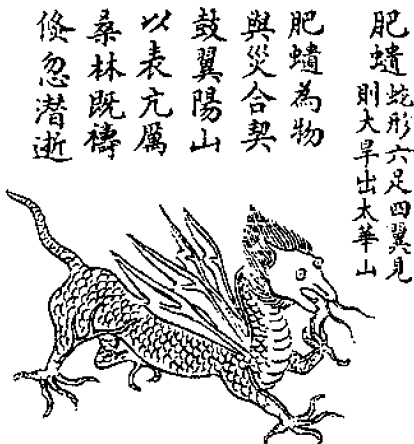 肥𧔥蛇形六足四翼見
則大旱出太華山
肥𧔥為物
與災合契
鼓翼陽山
以表亢厲
桑林既禱
倏忽潛逝